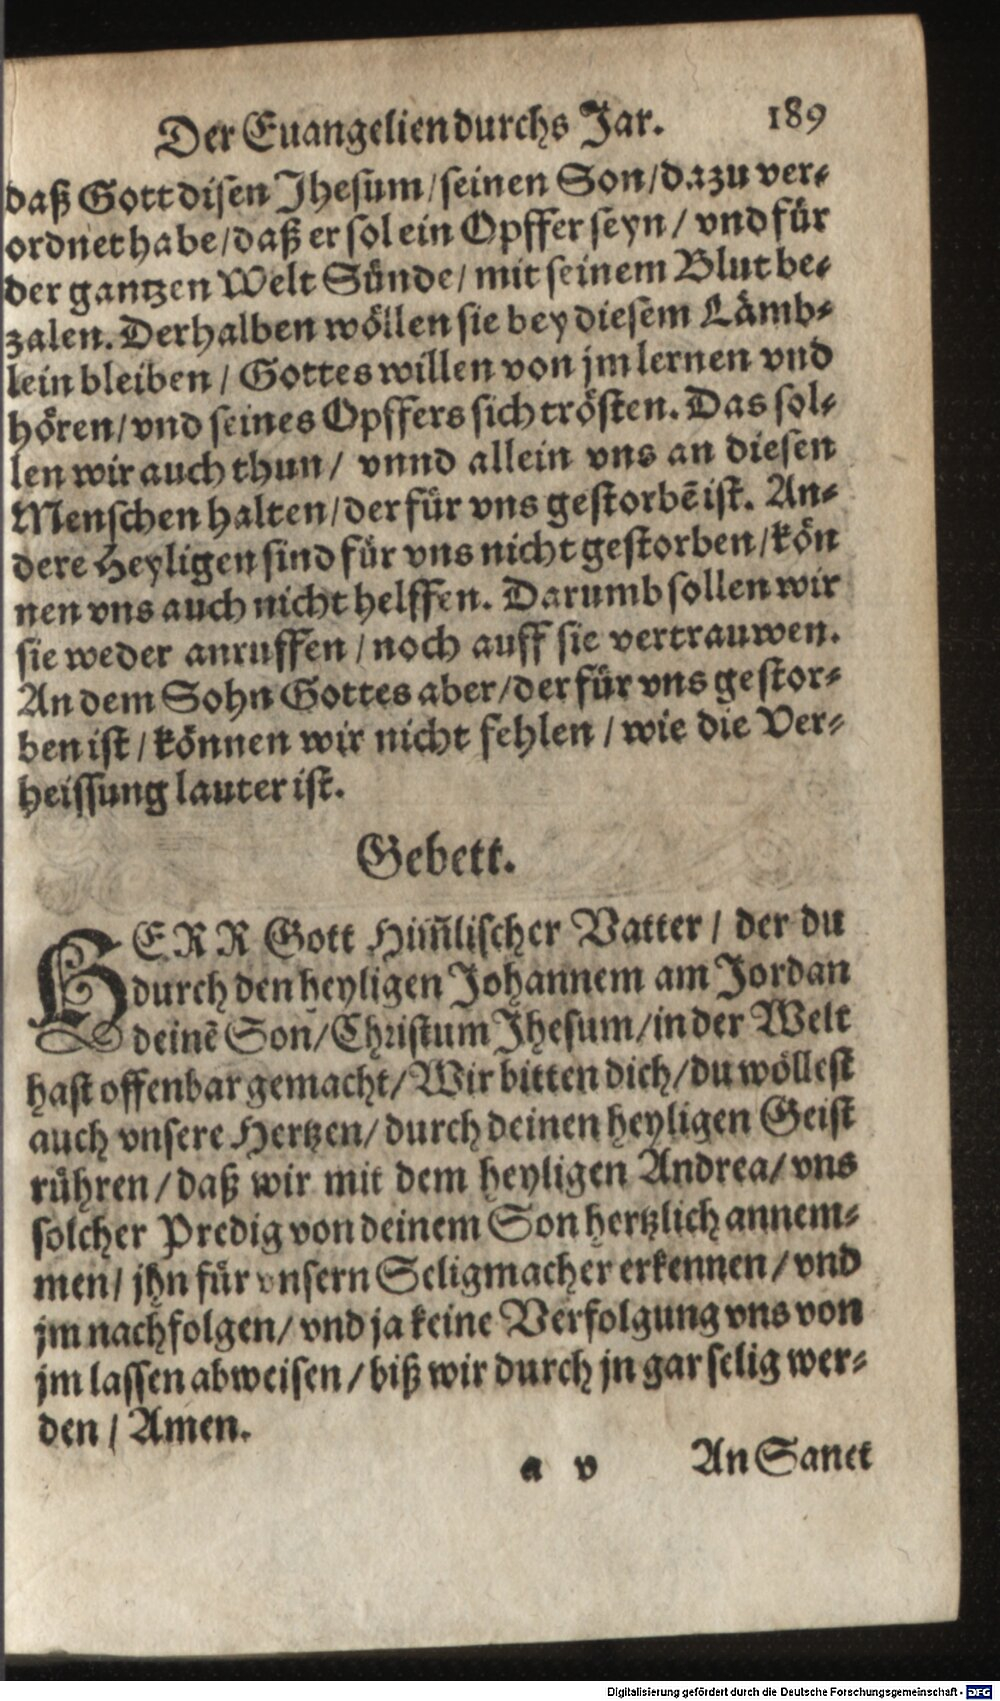 Der Euangelien durchs Jar. 189
daß Gott disen Jhesum/seinen Son/dazu ver-
ordnet habe/daß er sol ein Opffer seyn/ vnd für
der gantzen Welt Sünde/ mit seinem Blut be-
zalen. Derhalben wöllen sie bey diesem Lämb-
lein bleiben / Gottes willen von jm lernen vnd
hören/ vnd seines Opffers sich trösten. Das sol-
len wir auch thun/ vnnd allein vns an diesen
Menschen halten/der für vns gestorbē ist. An-
dere Heyligen sind für vns nicht gestorben/kön
nen vns auch nicht helffen. Darumb sollen wir
sie weder anruffen / noch auff sie vertrauwen.
An dem Sohn Gottes aber/der für vns gestor-
ben ist / können wir nicht fehlen / wie die Ver-
heissung lauter ist.
Gebett.
HERR Gott Him̃lischer Vatter / der du
durch den heyligen Johannem am Jordan
deinē Son/Christum Jhesum/in der Welt
hast offenbar gemacht/Wir bitten dich/du wöllest
auch vnsere Hertzen/ durch deinen heyligen Geist
rühren/daß wir mit dem heyligen Andrea/ vns
solcher Predig von deinem Son hertzlich annem-
men/ jhn für vnsern Seligmacher erkennen/vnd
jm nachfolgen/ vnd ja keine Verfolgung vns von
jm lassen abweisen/biß wir durch jn gar selig wer-
den / Amen.
a v An Sanct
Digitalisierung gefördert durch die Deutsche Forschungsgemeinschaft - DFG